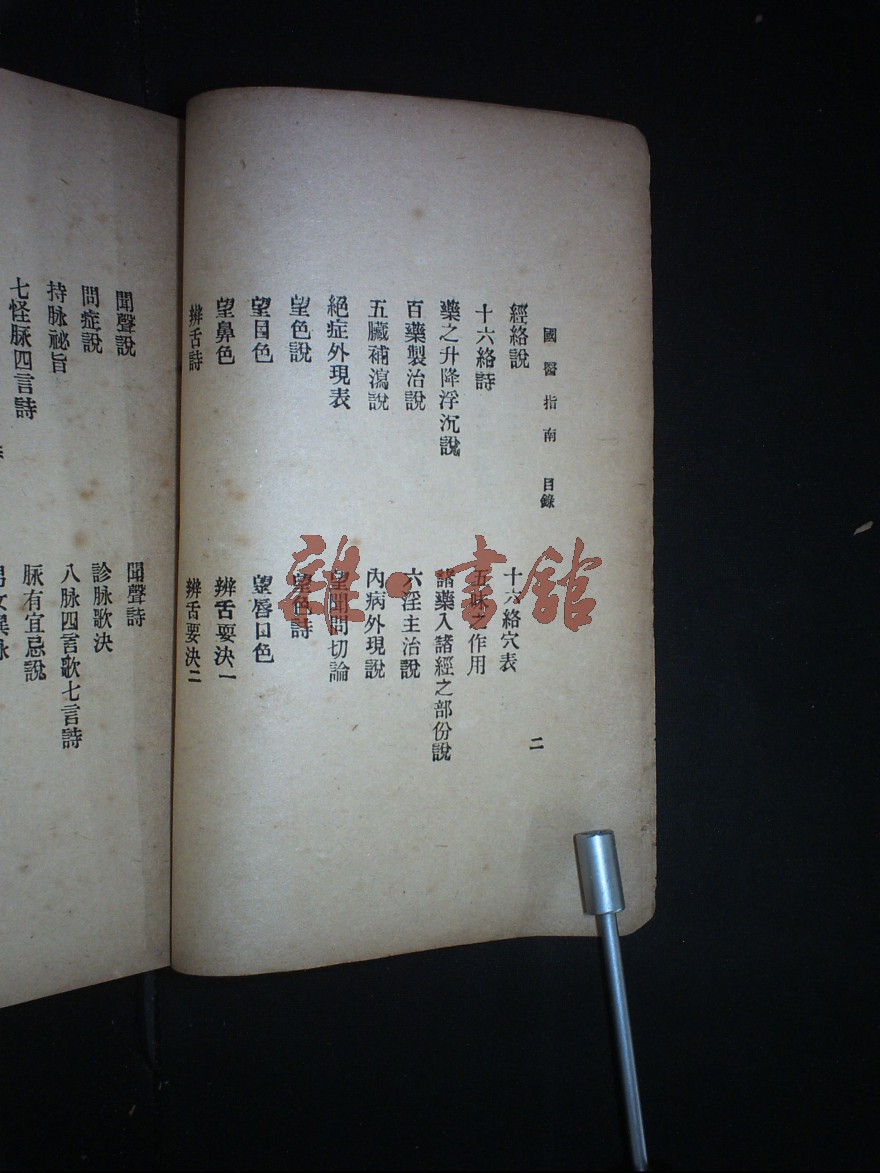 國醫指南 目錄 二
經絡說 十六絡穴表
十六絡詩 五味之作用
藥之升降浮沉說 諸藥入諸經之部份說
百藥製治說 六淫主治說
五臟補瀉說 內病外現說
絕症外現表 望聞問切論
望色說 望色詩
望目色 望唇口色
望鼻色 辨舌要決一
辨舌詩 辨舌要決二
聞聲說 聞聲詩
問症說 診脉歌決
持脉祕旨 八脉四言歌七言詩
七怪脉四言詩 脉有宜忌說
雜·書館